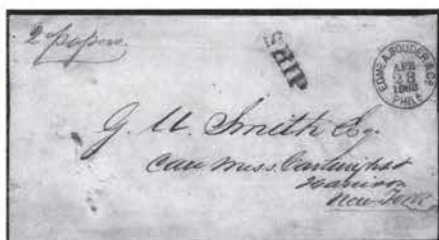 2 papers
SHIP
EDMD A. SOUDER & CO
APR
28
PHILA
G. U. Smith Esq.
Care Mess. Cartwright &
Harrison
New-York